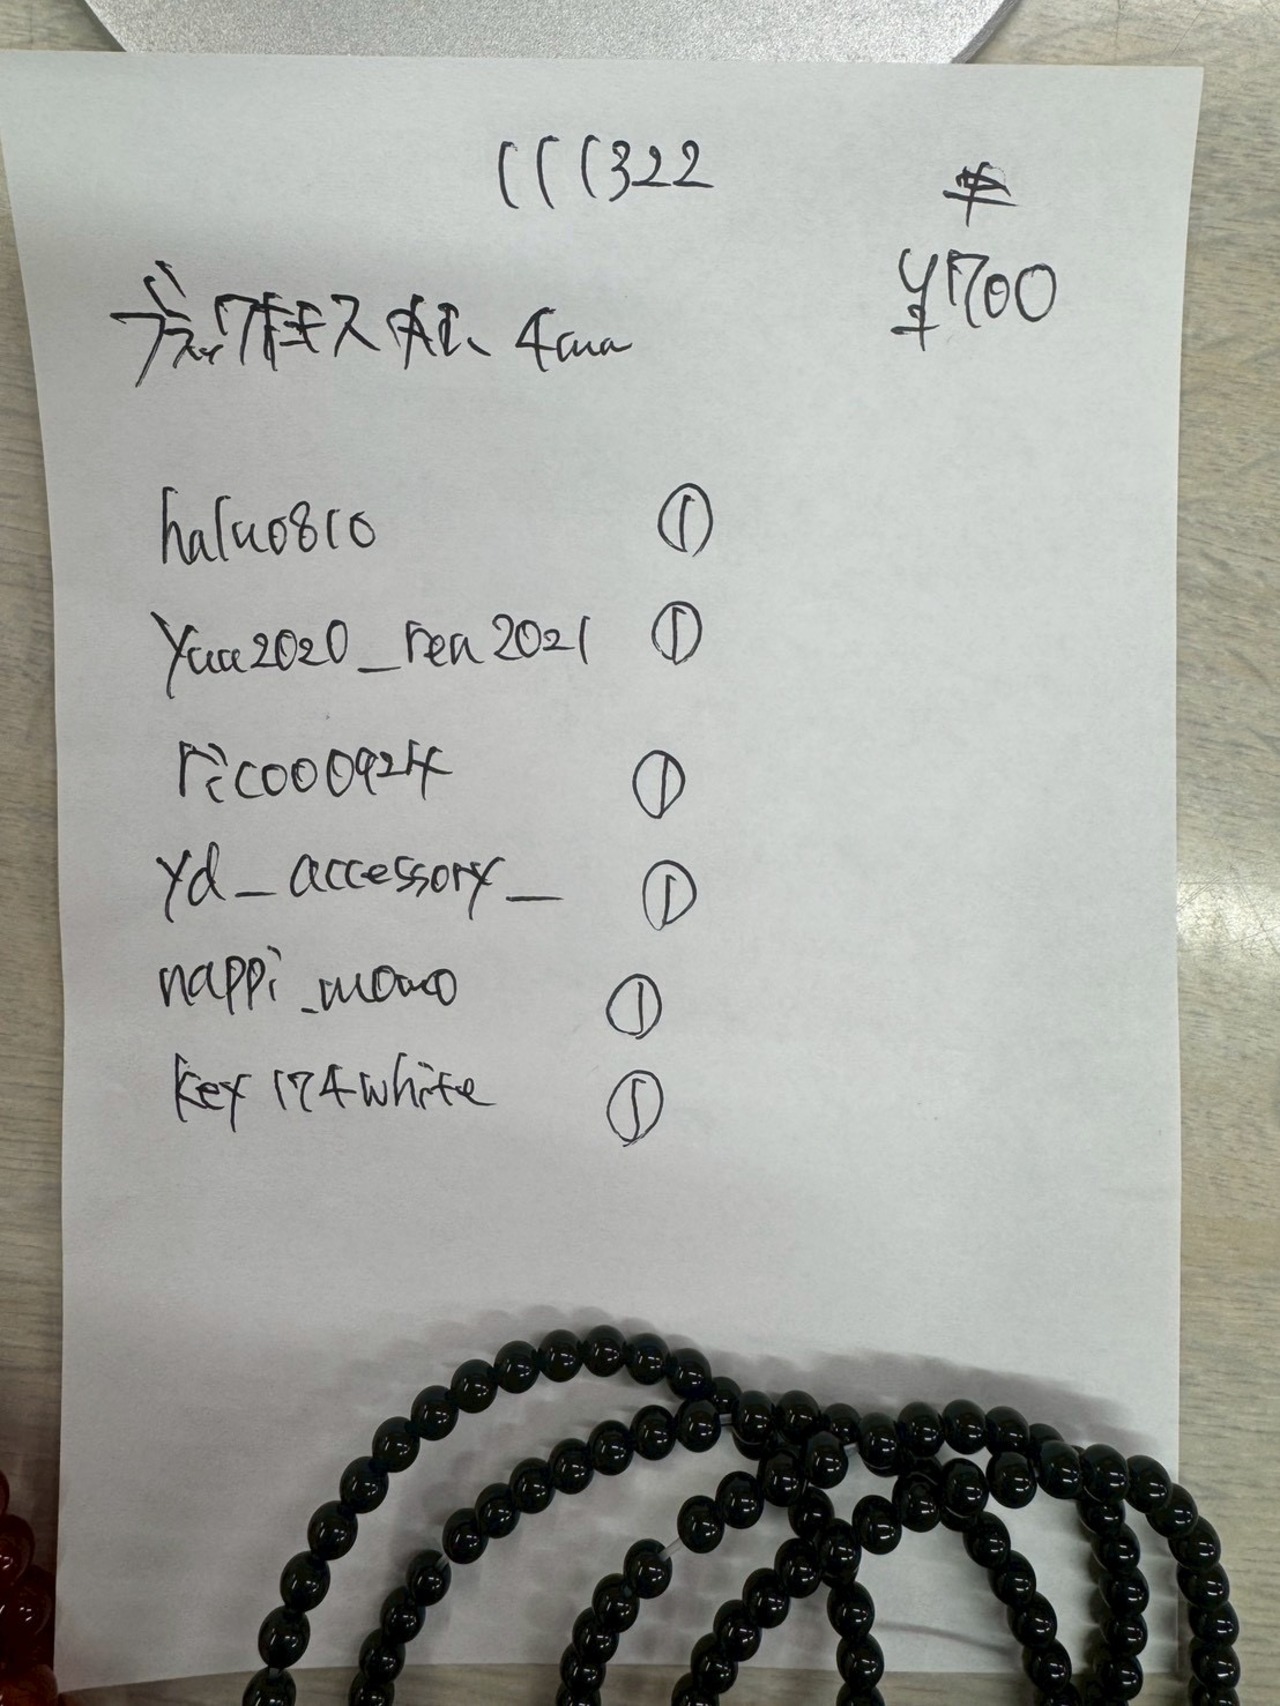 111322
¥700
ブラックオニキス 4mm
halu0810 ①
yuu2020_ren2021 ①
rico000924 ①
yd_accessory_ ①
nappi_momo ①
key174white ①